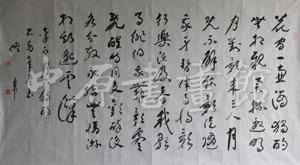 花間一壺酒獨酌
無相親舉杯邀明
月對影成三人月
既不解飲影徒隨
我身暫伴月將影
行樂須及春我歌
月徘徊我舞影零
亂醒時同交歡醉後
各分散永結無情遊
相期邈雲漢
中原書畫